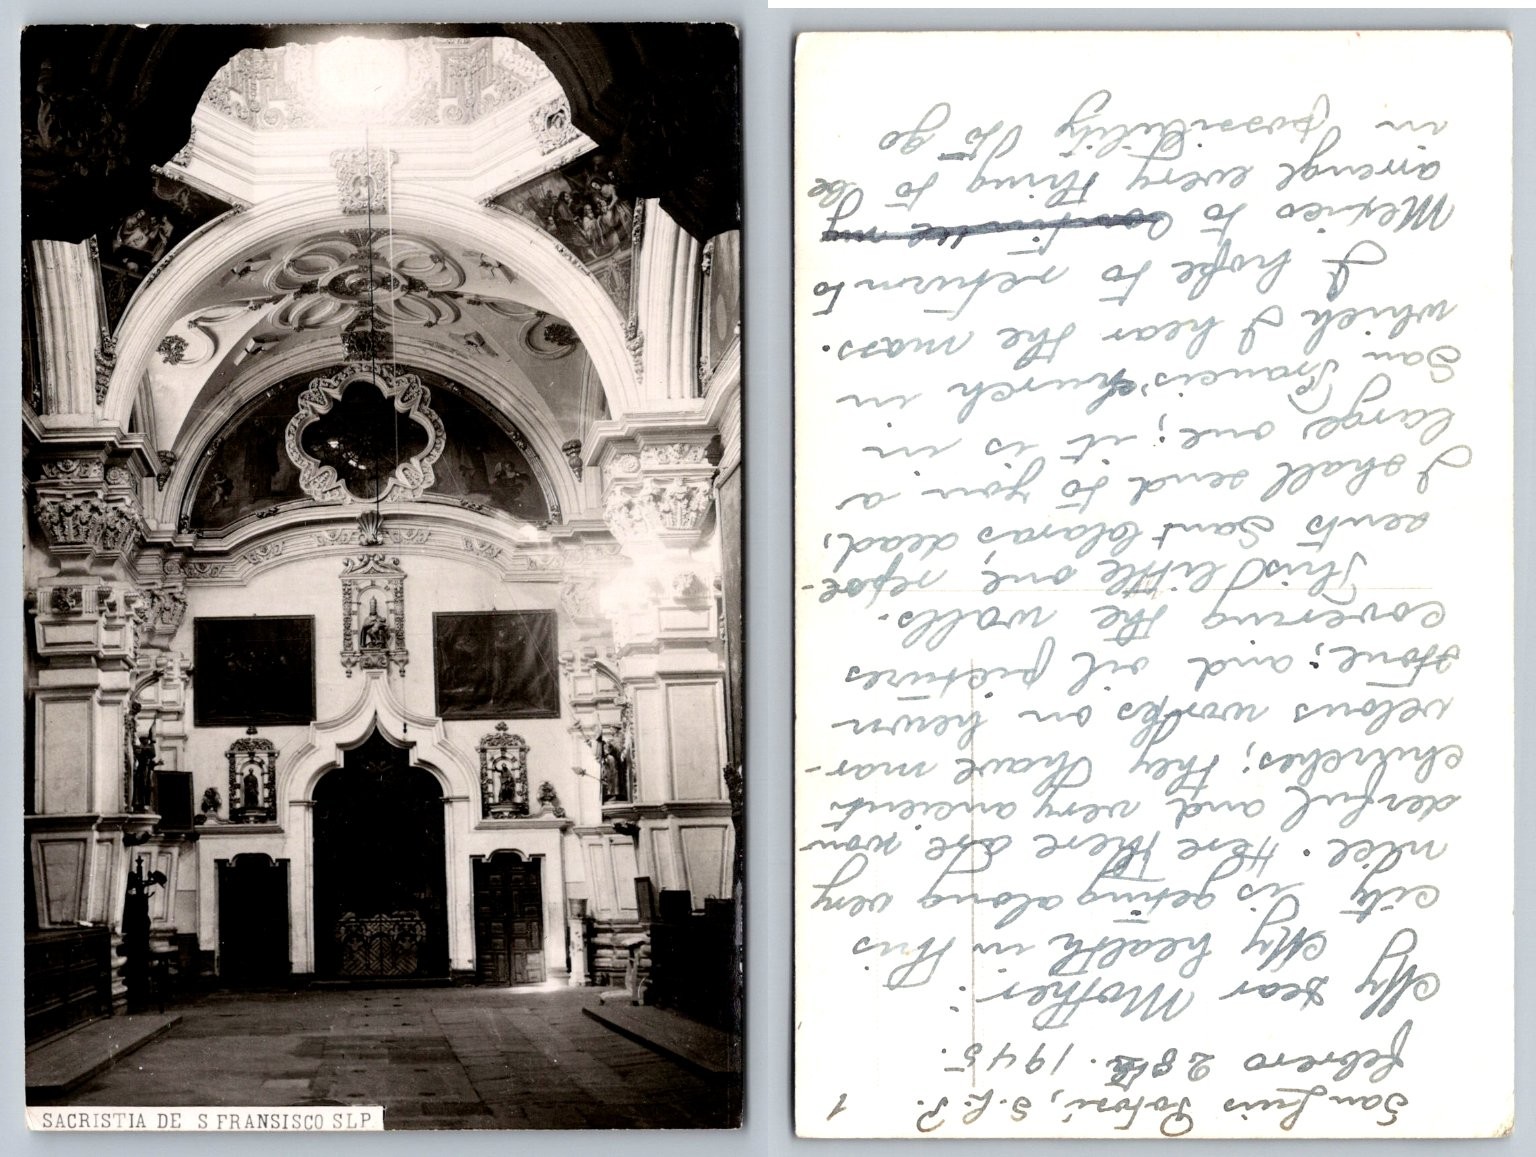 SACRISTIA DE S FRANSISCO SLP.
San Luis Potosí, S.L.P. 1
febrero 28th. 1945.
My dear Mother:
My health in this
city is geting along very
nice. Here there are won-
derful and very ancient
churches; they have mar-
velous works on hewn
stone; and oil pictures
covering the walls.
This little one, repre-
sents Sant Claras dead,
I shall send to you a
large one; it is in
San Francis' church in
which I hear the mass.
I hope to return to
Mexico to continue my
arrenge every thing to be
in possibility to go